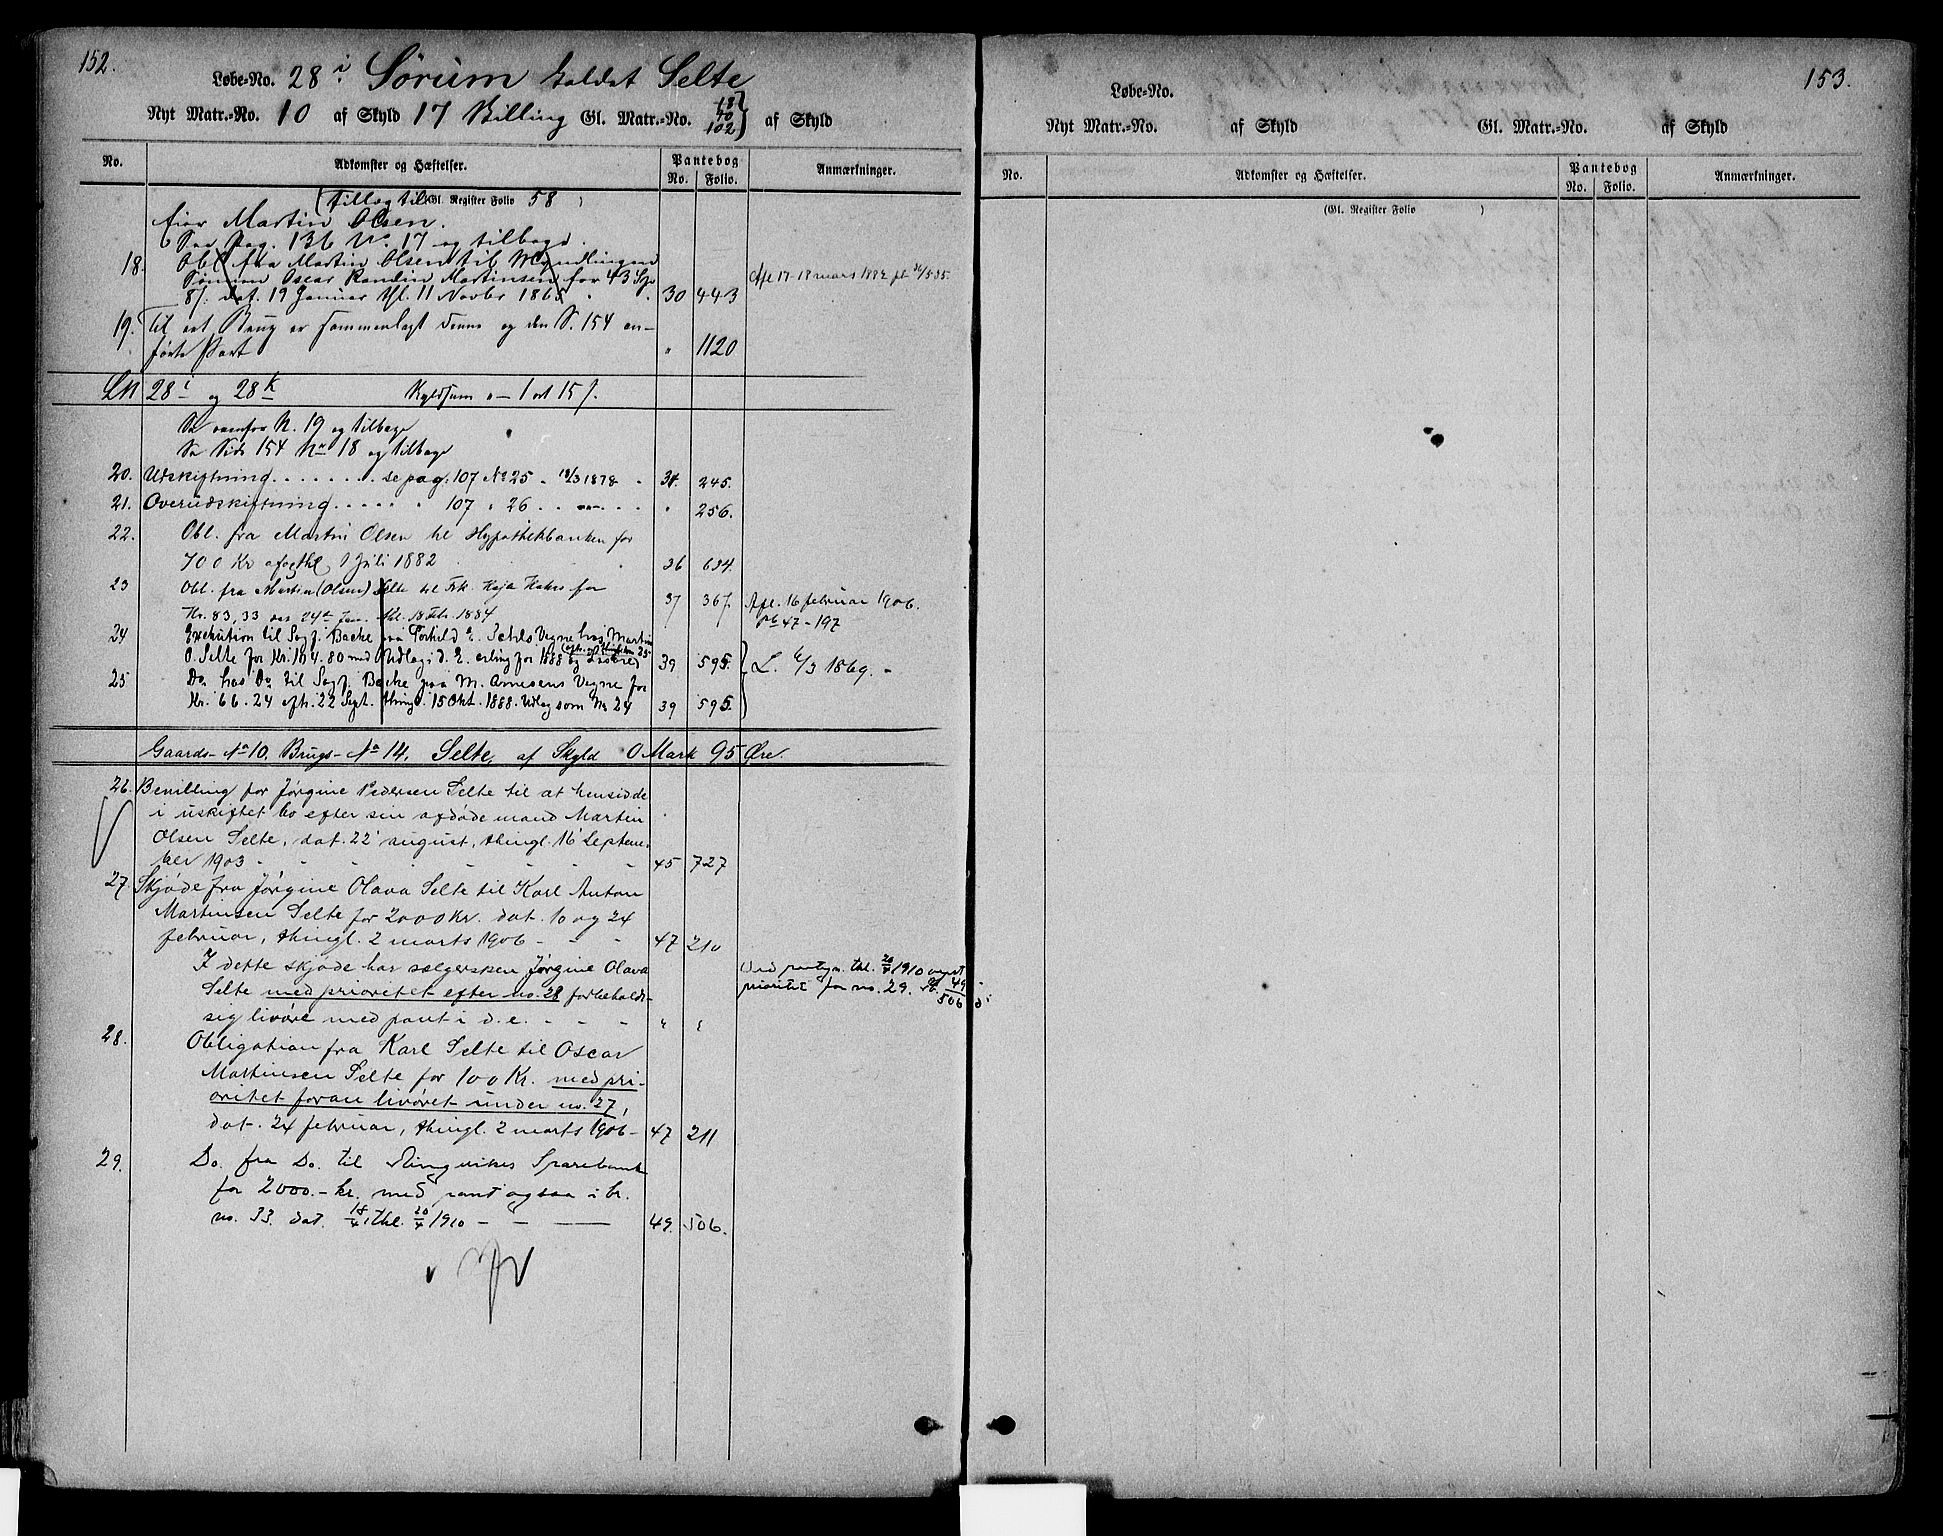 152.
Løbe-No. 28 i Sörum kaldet Selte
Nyt Matr.-No. 10 af Skyld 17 Skilling Gl. Matr.-No. 102 af Skyld
No. Adkomster og Hæftelser. Pantebog No. Folio. Anmærkninger.
(Tillæg til Gl. Register Folio 58 )
Eier Martin Olsen.
Se Pag. 136 No 17 og tilbage.
18. Obl. fra Martin Olsen til Myndlingen
Oscar Martinsen for 43 Spd
8 /. dat. 19 Januar thl. 11 Novbr 1865 30 443
19. Til et Brug er sammenlagt denne og den S. 154 an-
førte Part " 1120
LN 28 i og 28 k Skyldsum " - 1 ort 15 /.
Se ovenfor N. 19 og tilbage
Se Side 154 No 18 og tilbage
20. Udskiftning . . . . . . . se pag. 107 No 25 - 18/3 1878 - 245.
21. Overudskiftning . . . . " " 107 " 26 . . . . . " 256.
22. Obl. fra Martin Olsen til Hypothekbanken for
700 Kr thl. 1 Juli 1882 36 634.
23 Obl. fra Martin (Olsen) Selte til Frk. Kaja for
Kr. 83,33 24de Jan. thl. 18 Feb. 1884 37 367. Afl. 16 februar 1906.
pb 47-197
24 Exekution til Sagf. Backe paa Torkild E. Vegne hos Martin
O. Selte for Kr. 104.80 med Udlæg i d. E. for 1888 39 595. L. 6/3 1869. -
25 Do. hos Do til Sagf. Backe paa M. Arnesens Vegne for
Kr. 66.24 afh. 22 Sept. thingl. 15 Okt. 1888. Udlæg som No 24 39 595.
Gaards-No 10, Brugs-No 14. Selte, af Skyld 0 Mark 95 Øre.
26. Bevilling for Jørgine Pedersen Selte til at hensidde
i uskiftet bo efter sin afdøde mand Martin
Olsen Selte, dat. 22 august, thingl. 16 Septem-
ber 1903 - - - - - - 45 727
27. Skjøde fra Jørgine Olava Selte til Karl Anton
Martinsen Selte for 2000 kr. dat. 10 og 24
februar, thingl. 2 marts 1906 - - - 47 210
I dette skjøde har sælgersken Jørgine Olava
Selte med prioritet efter no. 28 forbeholdt
sig livøre med pant i d.e. - - - " "
Ved paategn. thl. 20/4 1910 veget
prioritet for no. 29. Pb. 49 - 506
28. Obligation fra Karl Selte til Oscar
Martinsen Selte for 100 Kr. med pri-
oritet foran livøret under no. 27,
dat. 24 februar, thingl. 2 marts 1906 - 47 211
29. Do. fra Do. til Sparebank
for 2000.- kr. med pant ogsaa i br.
no. 33. dat. 18/4, thl. 20/4 1910 - - - 49. 506.
153.
Løbe-No.
Nyt Matr.-No. af Skyld Gl. Matr.-No. af Skyld
No. Adkomster og Hæftelser. Pantebog No. Folio. Anmærkninger.
(Gl. Register Folio )